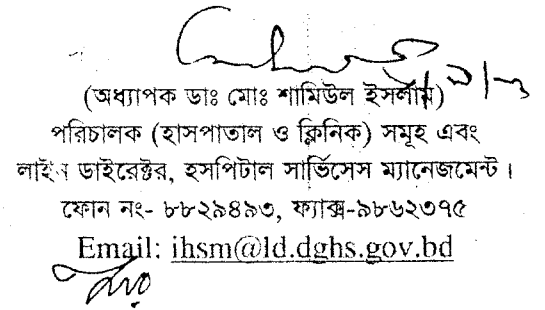 (অধ্যাপক ডাঃ মোঃ শামিউল ইসলাম)
পরিচালক (হাসপাতাল ও ক্লিনিক) সমূহ এবং
লাইন ডাইরেক্টর, হসপিটাল সার্ভিসেস ম্যানেজমেন্ট।
ফোন নং- ৮৮২৯৪৯৩, ফ্যাক্স-৯৮৬২৩৭৫
Email: ihsm@ld.dghs.gov.bd